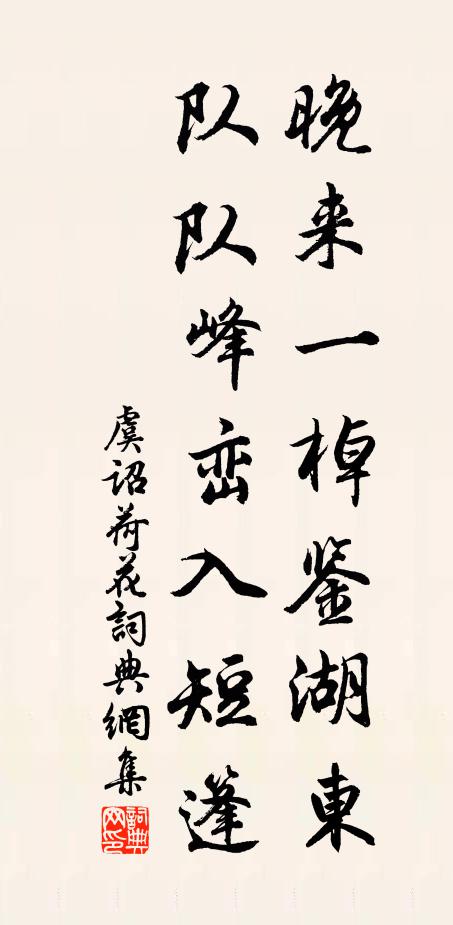 晚来一棹鉴湖東
队队峰峦入短篷
虞詔荷花詞典網集
詞典
网印